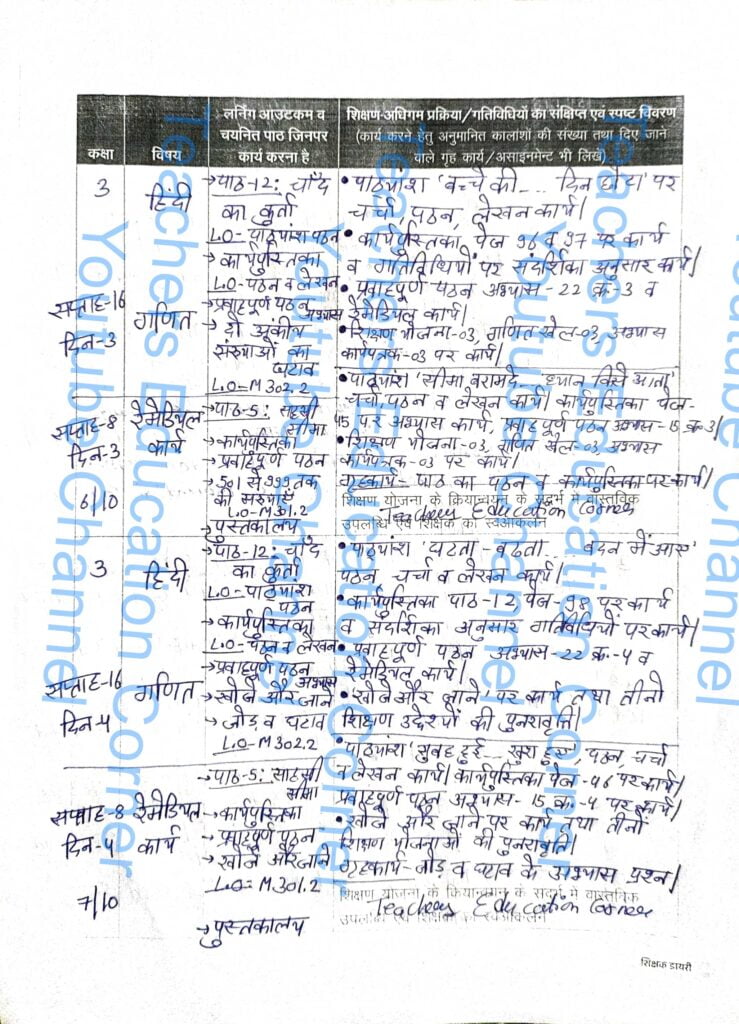 कक्षा
विषय
लर्निंग आउटकम व
चयनित पाठ जिनपर
कार्य करना है
शिक्षण-अधिगम प्रक्रिया/गतिविधियों का संक्षिप्त एवं स्पष्ट विवरण
(कार्य करने हेतु अनुमानित कालांशों की संख्या तथा दिए जाने
वाले गृह कार्य/असाइनमेन्ट भी लिखें)
3
हिंदी
→पाठ-12: चाँद
का कुर्ता
L.O- पाठ्यांश पठन
→कार्यपुस्तिका
L.O- पठन व लेखन
→प्रवाहपूर्ण पठन
अभ्यास
• पाठ्यांश 'बच्चे की... दिन छोटा' पर
चर्चा, पठन, लेखन कार्य।
• कार्यपुस्तिका, पेज 96 व 97 पर कार्य
व गतिविधियों पर संदर्शिका अनुसार कार्य।
• प्रवाहपूर्ण पठन अभ्यास-22 क्र-3 व
रेमेडियल कार्य।
सप्ताह-16
दिन-3
गणित
→ दो अंकीय
संख्याओं का
घटाव
L.O-M302.2
• शिक्षण योजना-03, गणित खेल-03, अभ्यास
कार्यपत्रक-03 पर कार्य।
सप्ताह-8
दिन-3
6/10
रेमेडियल
कार्य
→पाठ-5: साहसी
सीमा
→कार्यपुस्तिका
→प्रवाहपूर्ण पठन
→501 से 999 तक
की संख्याएँ
L.O-M301.2
→पुस्तकालय
• पाठ्यांश 'सीमा बरामदे... ध्यान किसे आता'
चर्चा पठन व लेखन कार्य। कार्यपुस्तिका पेज-
45 पर अभ्यास कार्य, प्रवाहपूर्ण पठन अभ्यास-15 क्र-3।
• शिक्षण योजना-03, गणित खेल-03, अभ्यास
कार्यपत्रक-03 पर कार्य।
गृहकार्य- पाठ का पठन व कार्यपुस्तिका पर कार्य।
शिक्षण योजना के क्रियान्वयन के सन्दर्भ में वास्तविक
उपलब्धि एवं शिक्षक का स्वआकलन
Teachers Education Corner
3
हिंदी
→पाठ-12: चाँद
का कुर्ता
L.O- पाठ्यांश
पठन
→कार्यपुस्तिका
L.O- पठन व लेखन
→प्रवाहपूर्ण पठन
अभ्यास
• पाठ्यांश 'घटता-बढ़ता... बदन में आए'
पठन, चर्चा व लेखन कार्य।
• कार्यपुस्तिका पाठ-12, पेज-98 पर कार्य
व संदर्शिका अनुसार गतिविधियों पर कार्य।
• प्रवाहपूर्ण पठन अभ्यास-22 क्र-4 व
रेमेडियल कार्य।
सप्ताह-16
दिन-4
गणित
→खोजें और जानें
→ जोड़ व घटाव
L.O-M302.2
• 'खोजें और जानें' पर कार्य तथा तीनों
शिक्षण उद्देश्यों की पुनरावृत्ति।
सप्ताह-8
दिन-4
7/10
रेमेडियल
कार्य
→पाठ-5: साहसी
सीमा
→कार्यपुस्तिका
→प्रवाहपूर्ण पठन
→खोजें और जानें
L.O-M301.2
→पुस्तकालय
• पाठ्यांश 'सुबह हुई... खुश हुए', पठन, चर्चा
व लेखन कार्य। कार्यपुस्तिका पेज-46 पर कार्य।
प्रवाहपूर्ण पठन अभ्यास-15 क्र-4 पर कार्य।
• खोजें और जानें पर कार्य तथा तीनों
शिक्षण योजनाओं की पुनरावृत्ति।
गृहकार्य- जोड़ व घटाव के अभ्यास प्रश्न।
शिक्षण योजना के क्रियान्वयन के सन्दर्भ में वास्तविक
उपलब्धि एवं शिक्षक का स्वआकलन
Teachers Education Corner
शिक्षक डायरी
Teachers Education Corner
Youtube Channel
Teachers Education Corner
Youtube Channel
Teachers Education Corner
Youtube Channel